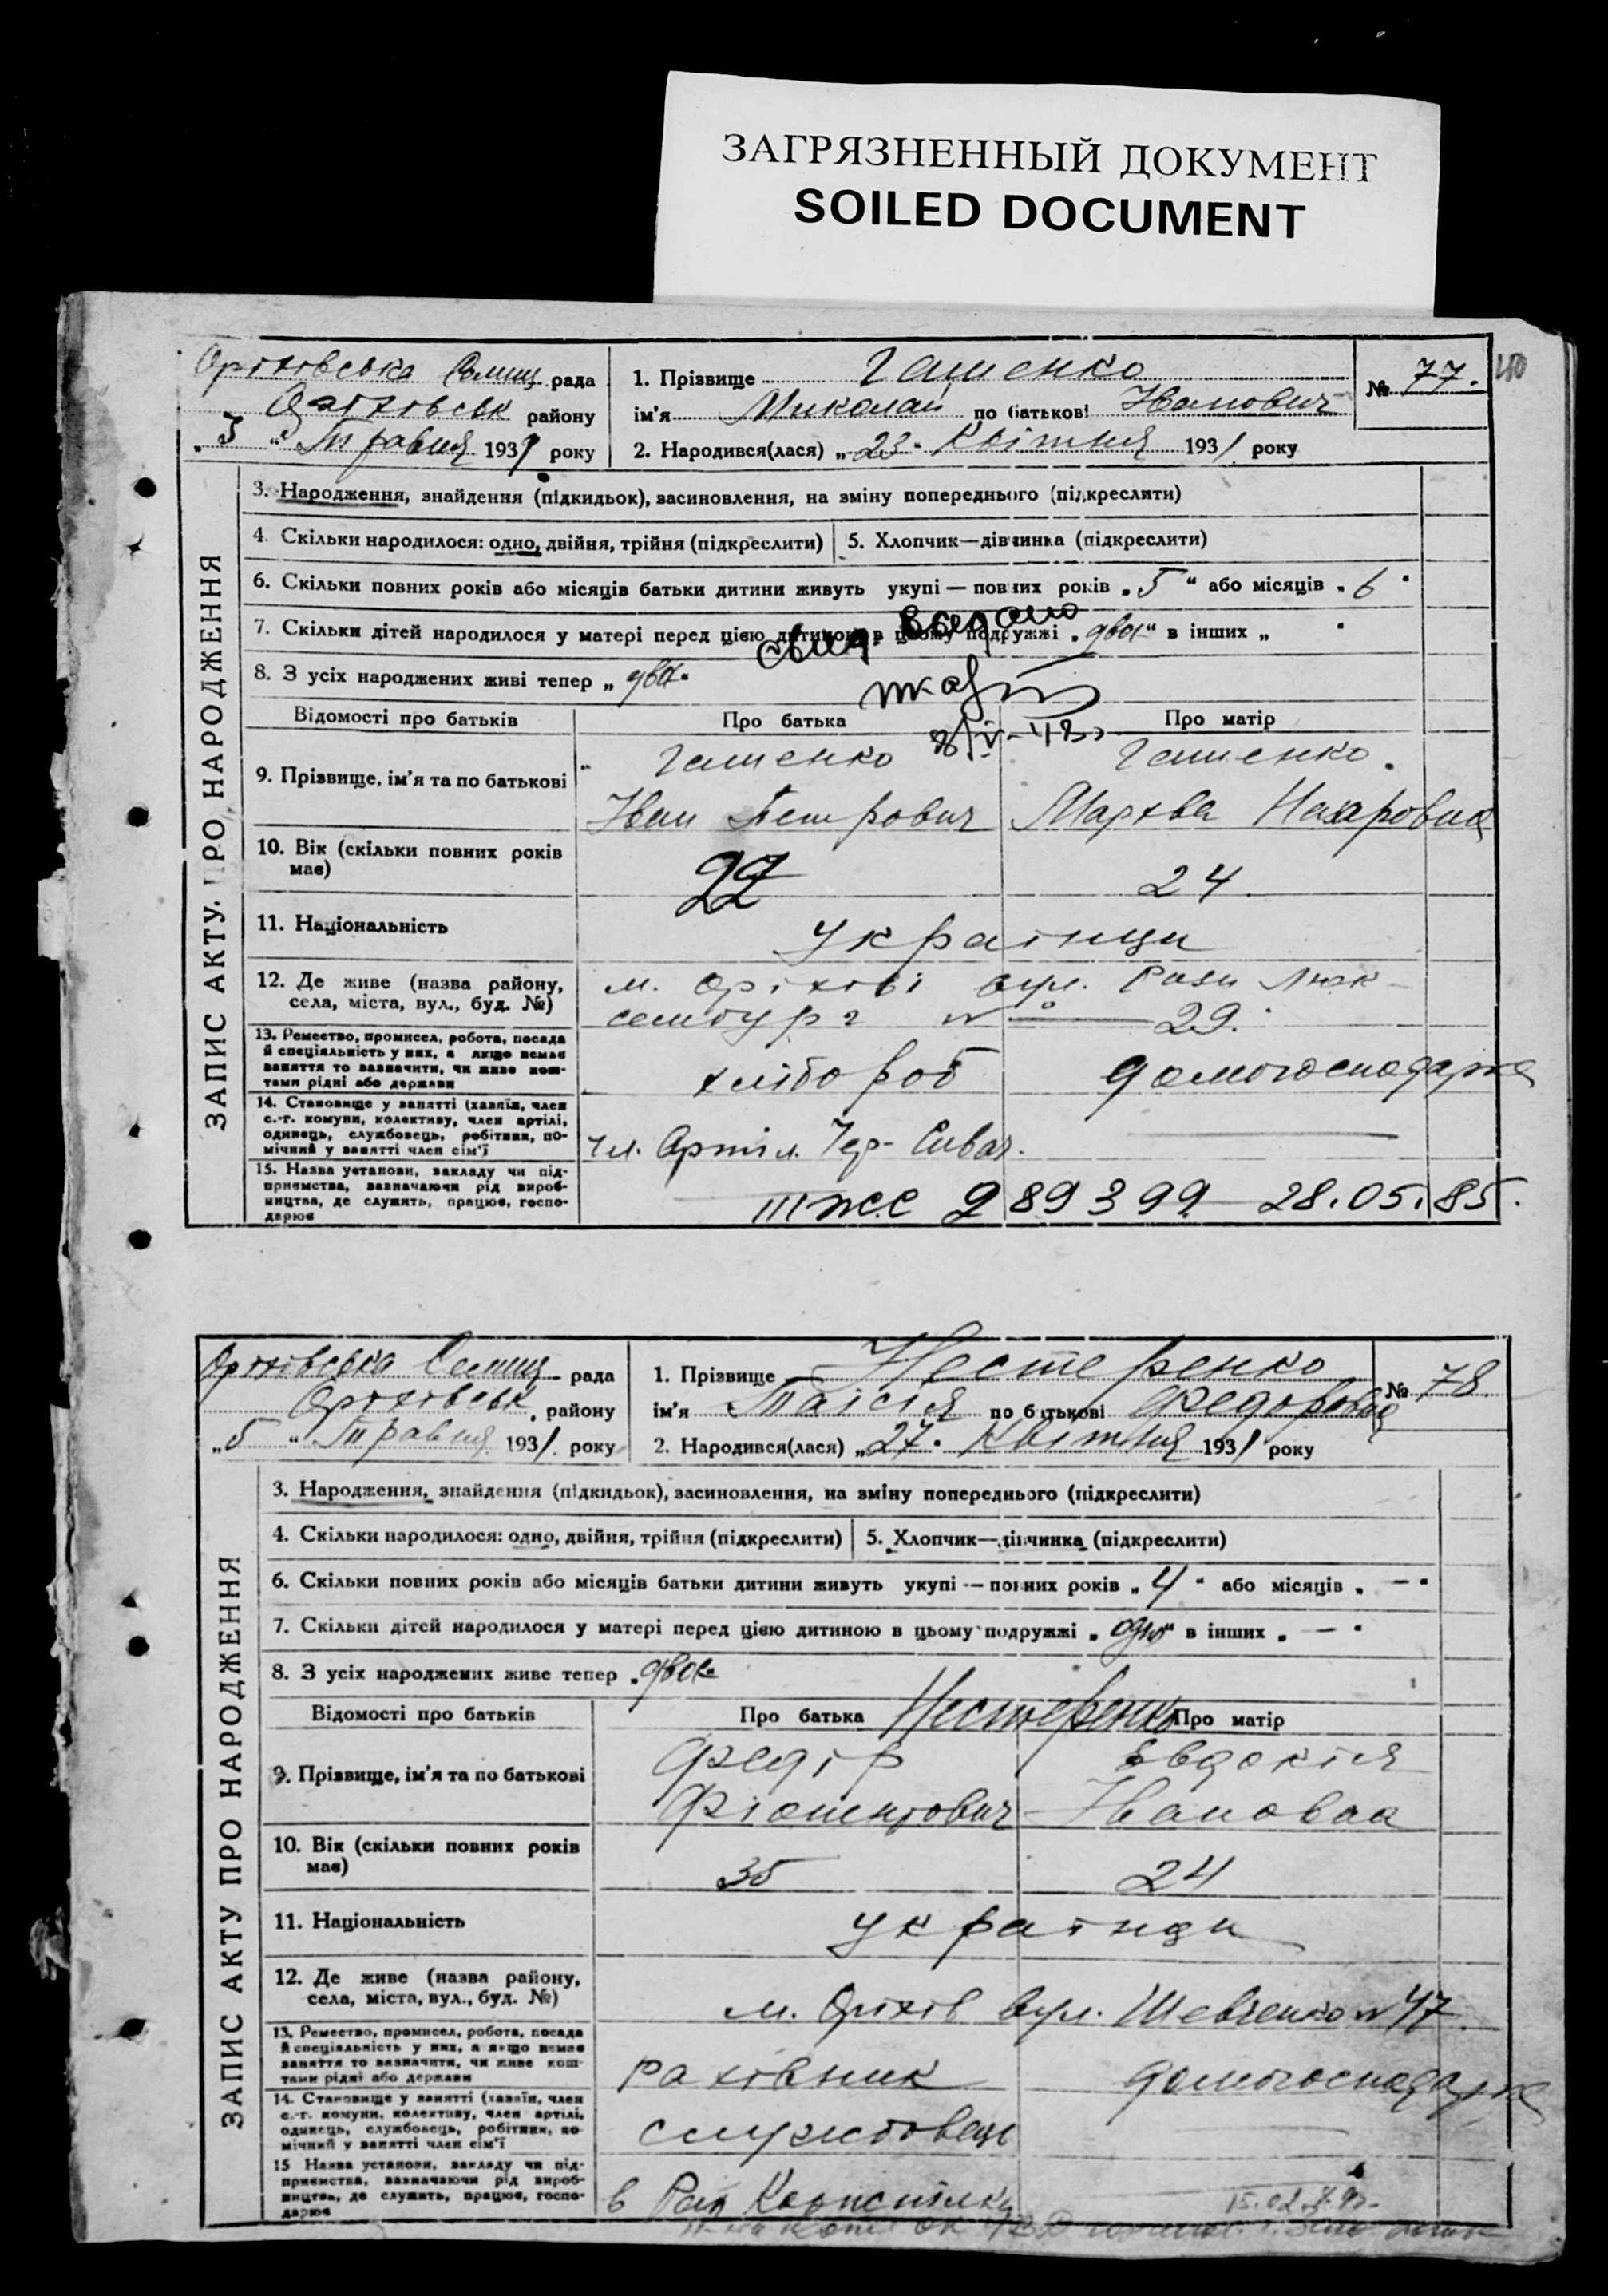 ЗАГРЯЗНЕННЫЙ ДОКУМЕНТ
SOILED DOCUMENT
Оріхівська Селищ рада
Оріхівськ району
„5“ Травня 1931 року
1. Прізвище Гашенко
ім'я Миколай по батькові Іванович
2. Народився(лася) „23“ Квітня 1931 року
№ 77.
ЗАПИС АКТУ ПРО НАРОДЖЕННЯ
3. Народження, знайдення (підкидьок), засиновлення, на зміну попереднього (підкреслити)
4. Скільки народилося: одно, двійня, трійня (підкреслити)
5. Хлопчик—дівчинка (підкреслити)
6. Скільки повних років або місяців батьки дитини живуть укупі — повних років „5“ або місяців „6“
7. Скільки дітей народилося у матері перед цією дитиною в цьому подружжі „двоє“ в інших „ “
8. З усіх народжених живі тепер „двоє“
Відомості про батьків
Про батька
Про матір
9. Прізвище, ім'я та по батькові
Гашенко
Іван Петрович
Гашенко
Мархва Назаровна
10. Вік (скільки повних років має)
27
24
11. Національність
українци
12. Де живе (назва району, села, міста, вул., буд. №)
м. Оріхові вул. Рози Люк-
сембург № 29.
13. Ремество, промисел, робота, посада
й спеціяльність у них, а якщо немає
заняття то зазначити, чи живе кош-
тами рідні або держави
хлібороб
домогосподарка
14. Становище у занятті (хазяїн, член
с.-г. комуни, колективу, член артілі,
одинець, службовець, робітник, по-
мічний у занятті член сім'ї
чл. Артіл. Чер- Сиваш.
15. Назва установи, закладу чи під-
приємства, зазначаючи рід вироб-
ництва, де служить, працює, госпо-
дарює
989399 28.05.85.
Оріхівська Селищ рада
Оріхівськ району
„5“ Травня 1931 року
1. Прізвище Нестеренко
ім'я Таісія по батькові Федоровна
2. Народився(лася) „27“ Квітня 1931 року
№ 78.
ЗАПИС АКТУ ПРО НАРОДЖЕННЯ
3. Народження, знайдення (підкидьок), засиновлення, на зміну попереднього (підкреслити)
4. Скільки народилося: одно, двійня, трійня (підкреслити)
5. Хлопчик—дівчинка (підкреслити)
6. Скільки повних років або місяців батьки дитини живуть укупі — повних років „4“ або місяців „—“
7. Скільки дітей народилося у матері перед цією дитиною в цьому подружжі „одно“ в інших „—“
8. З усіх народжених живе тепер „двоє“
Відомості про батьків
Про батька
Нестеренко
Про матір
9. Прізвище, ім'я та по батькові
Федір
Євдокія
Івановна
10. Вік (скільки повних років має)
35
24
11. Національність
українци
12. Де живе (назва району, села, міста, вул., буд. №)
м. Оріхів вул. Шевченко № 47
13. Ремество, промисел, робота, посада
й спеціяльність у них, а якщо немає
заняття то зазначити, чи живе кош-
тами рідні або держави
рахівник
домогосподарка
14. Становище у занятті (хазяїн, член
с.-г. комуни, колективу, член артілі,
одинець, службовець, робітник, по-
мічний у занятті член сім'ї
службовець
15 Назва установи, закладу чи під-
приємства, зазначаючи рід вироб-
ництва, де служить, працює, госпо-
дарює
в Рай Коопспілки